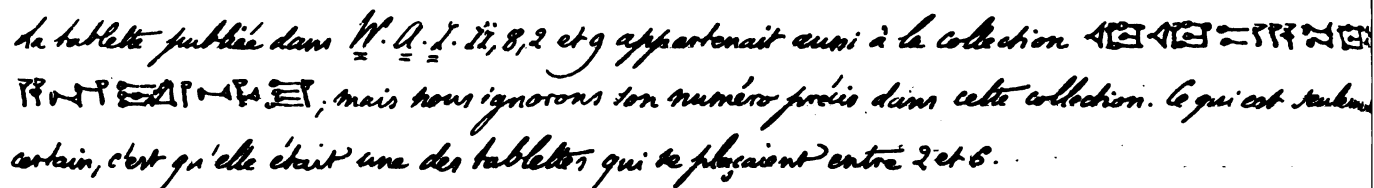 La tablette publiée dans W. A. I. II, 8, 2 et 9 appartenait aussi à la collection
; mais nous ignorons son numéro précis dans cette collection. Ce qui est seulem
certain, c'est qu'elle était une des tablettes qui se plaçaient entre 2 et 6.